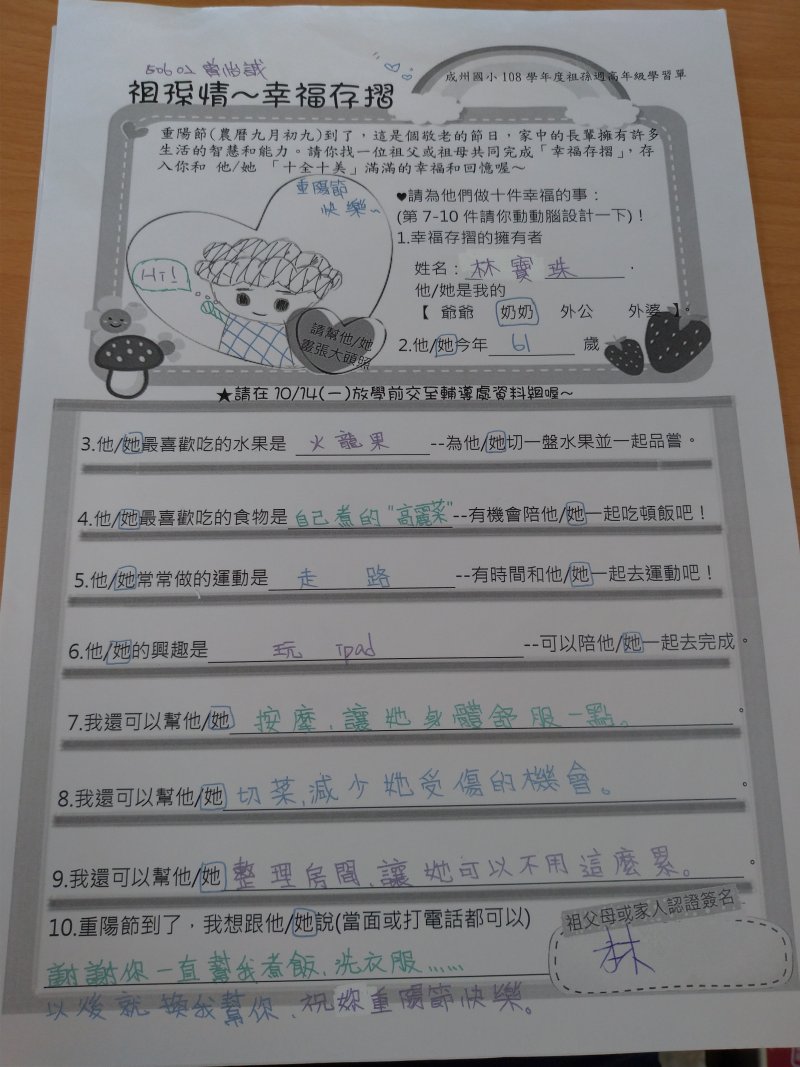 成州國小108學年度祖孫週高年級學習單
506 02 黃怡誠
祖孫情～幸福存摺
重陽節(農曆九月初九)到了，這是個敬老的節日，家中的長輩擁有許多
生活的智慧和能力。請你找一位祖父或祖母共同完成「幸福存摺」，存
入你和 他/她 「十全十美」滿滿的幸福和回憶喔～
重陽節
快樂~
Hi!
請幫他/她
畫張大頭照
♥請為他們做十件幸福的事：
(第7-10件請你動動腦設計一下)！
1.幸福存摺的擁有者
姓名：林寶珠．
他/她是我的
【 爺爺 奶奶 外公 外婆 】。
2.他/她今年 61 歲
★請在10/14(一)放學前交至輔導處資料組喔～
3.他/她最喜歡吃的水果是 火龍果 --為他/她切一盤水果並一起品嘗。
4.他/她最喜歡吃的食物是自己煮的"高麗菜"--有機會陪他/她一起吃頓飯吧！
5.他/她常常做的運動是 走路 --有時間和他/她一起去運動吧！
6.他/她的興趣是 玩 ipad --可以陪他/她一起去完成。
7.我還可以幫他/她 按摩，讓她身體舒服一點。。
8.我還可以幫他/她 切菜，減少她受傷的機會。。
9.我還可以幫他/她 整理房間，讓她可以不用這麼累。。
10.重陽節到了，我想跟他/她說(當面或打電話都可以)
謝謝你一直幫我煮飯，洗衣服……
以後就換我幫你，祝妳重陽節快樂。
祖父母或家人認證簽名
林